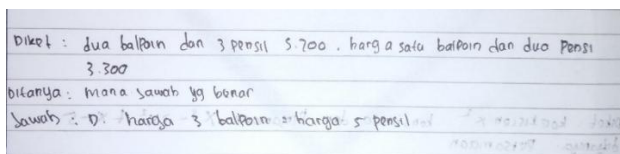 Diket : dua balpoin dan 3 pensil 5.700 . harga satu balpoin dan dua Pensi
3.300
Ditanya : mana Jawab yg benar
Jawab : D. harga 3 balpoin = harga 5 pensil